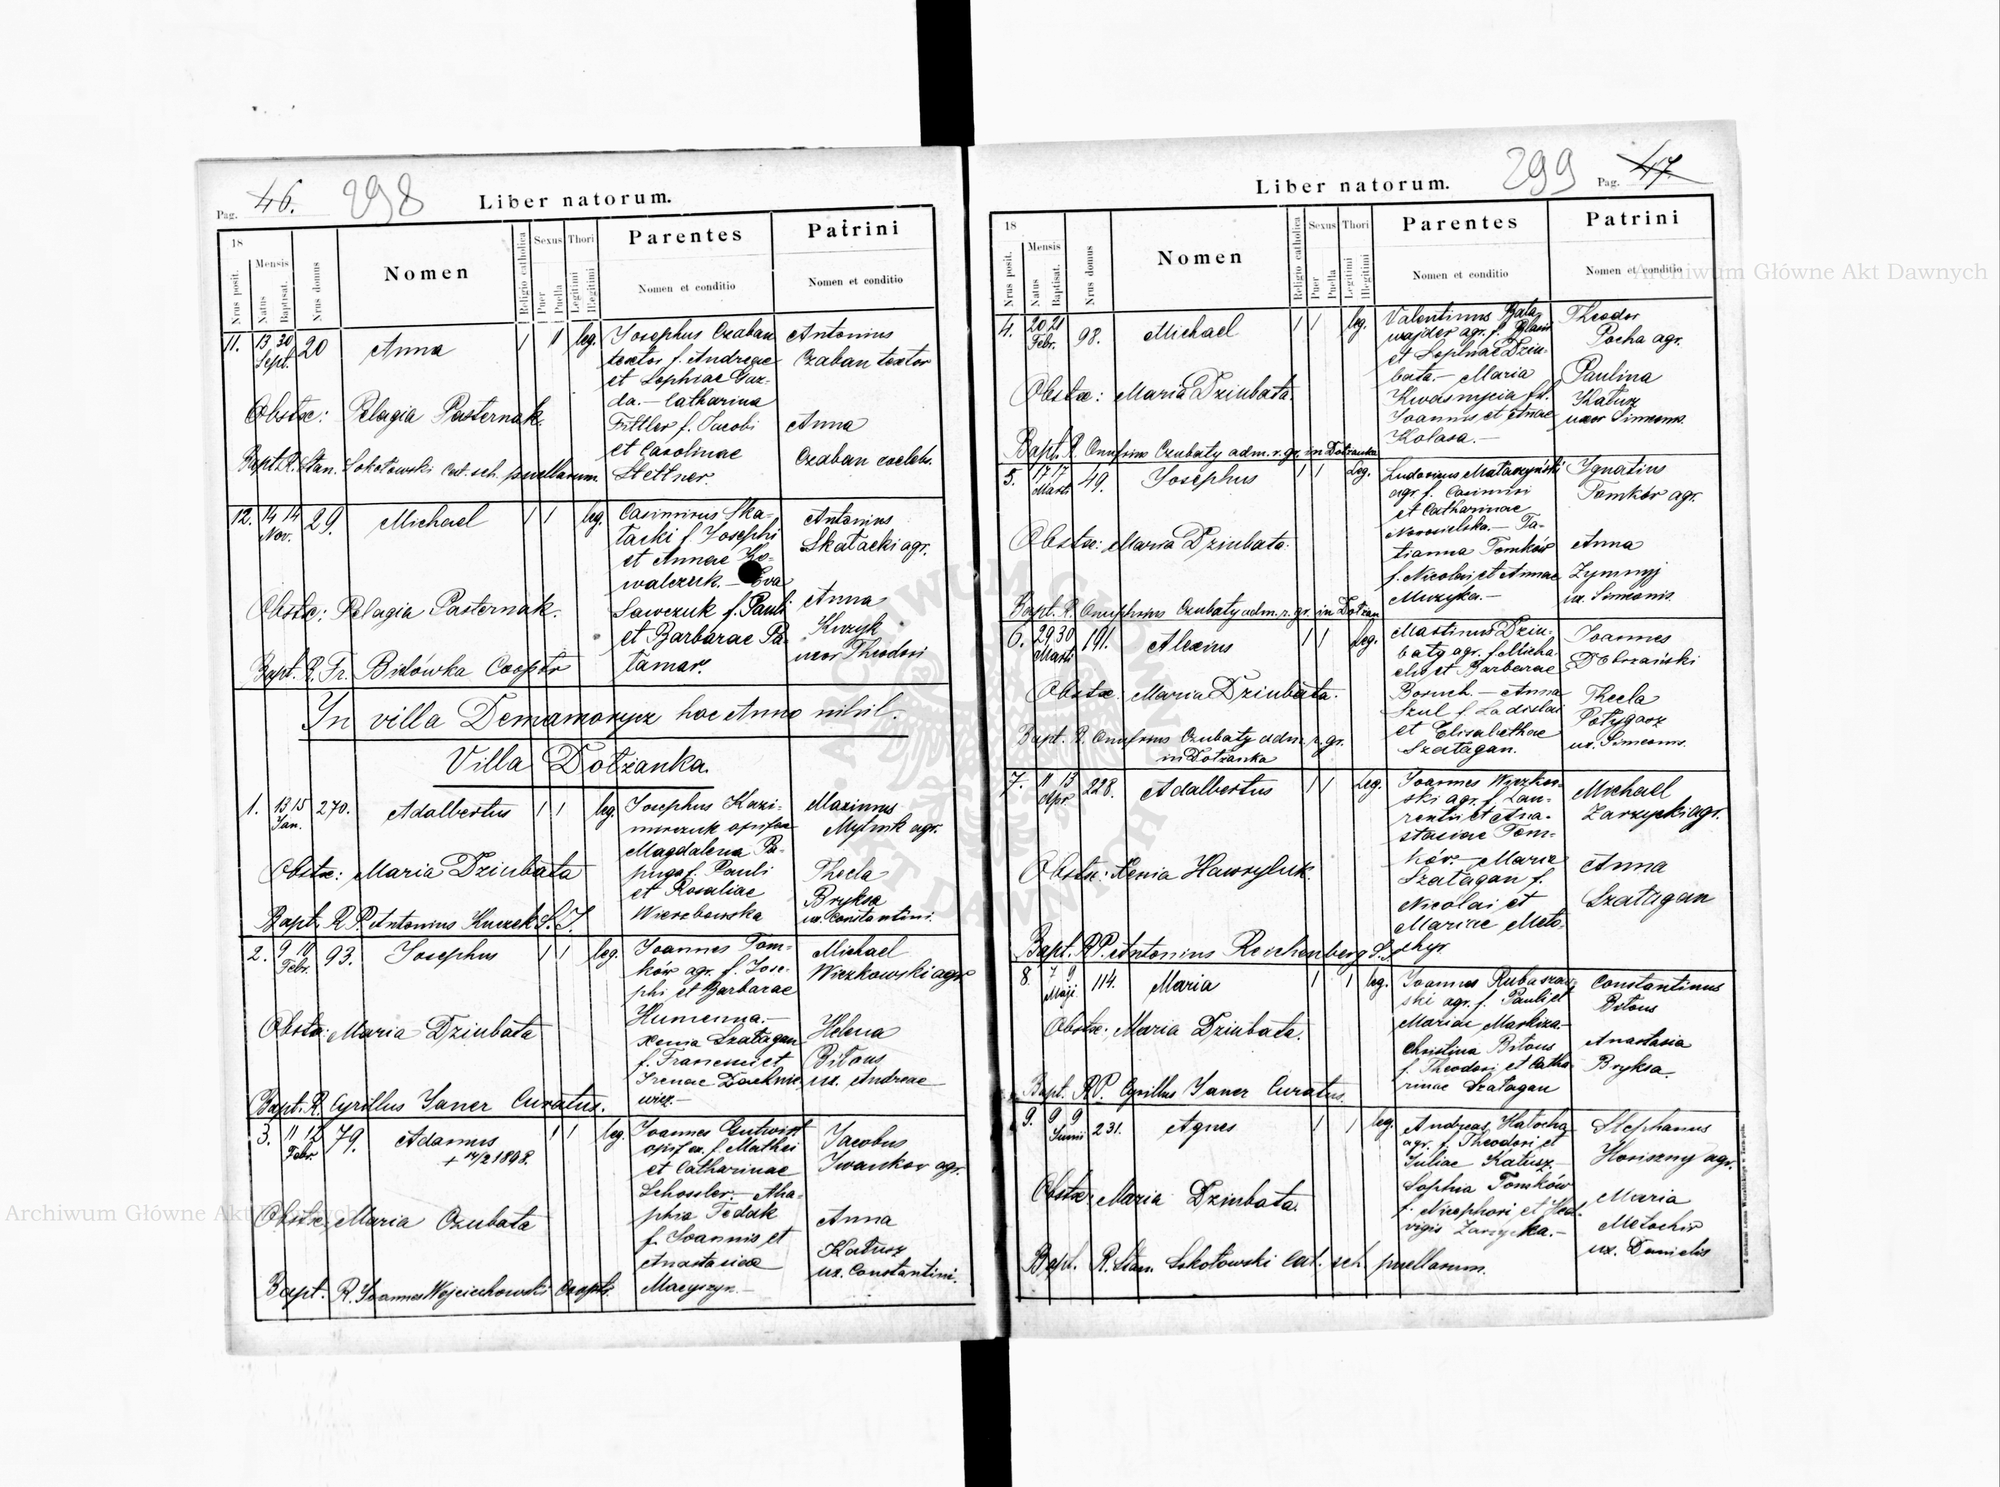 Pag. 46. 298
Liber natorum.
18
Nrus posit.
Mensis
Natus
Baptisat.
Nrus domus
Nomen
Religio catholica
Sexus
Puer
Puella
Thori
Legitimi
Illegitimi
Parentes
Nomen et conditio
Patrini
Nomen et conditio
11. 13 30 Sept. 20 Anna 1 1 leg.
Josephus Czaban
textor f. Andreae
et Sophiae Guz-
da. — Catharina
Fittler f. Jacobi
et Carolinae
Stettner.
Antonius
Czaban textor
Anna
Czaban coelebs.
Obstæ: Pelagia Pasternak.
Bapt. R. Stan. Sokołowski cat. sch. puellarum.
12. 14 14 Nov. 29. Michael 1 1 leg.
Casimirus Ska-
łacki f. Josephi
et Annae Ko-
walczuk — Eva
Sawczuk f. Pauli
et Barbarae Pa-
tamar.
Antonius
Skałacki agr.
Anna
Kuzyk
uxor Theodori
Obstæ: Pelagia Pasternak.
Bapt. R. Fr. Bidówka Cooptr
In villa Demamorycz hoc Anno nihil.
Villa Dołżanka.
1. 13 15 Jan. 270. Adalbertus 1 1 leg.
Josephus Kazi-
mirczuk opifex
Magdalena Pa-
puga f. Pauli
et Rosaliae
Wierzbowska
Maximus
Mylnik agr.
Thecla
Bryksa
ux. Constantini.
Obstæ: Maria Dziubata
Bapt. R. P. Antonius Kuczek S. J.
2. 9 10 Febr. 93. Josephus 1 1 leg.
Joannes Tom-
ków agr. f. Jose-
phi et Barbarae
Humenna. —
Xenia Szatagan
f. Francisci et
Irenae
wicz. —
Michael
Wiczkowski agr.
Helena
Biłous
ux. Andreae
Obstæ: Maria Dziubata
Bapt. R. Cyrillus Janer Curatus.
3. 11 12 Febr. 79. Adamus 1 1 leg.
+ 14/2 1898.
Joannes Gutwirt
opifex. f. Mathei
et Catharinae
Schossler. — Aha-
phia Fedak
f. Joannis et
Anastasiae
Macyszyn. —
Jacobus
Iwankow agr.
Anna
Katusz
ux. Constantini.
Obstæ: Maria Czubata
Bapt. R. Joannes Wojciechowski Cooptr.
299 Pag. 47.
Liber natorum.
18
Nrus posit.
Mensis
Natus
Baptisat.
Nrus domus
Nomen
Religio catholica
Sexus
Puer
Puella
Thori
Legitimi
Illegitimi
Parentes
Nomen et conditio
Patrini
Nomen et conditio
4. 20 21 Febr. 98. Michael 1 1 leg.
Valentinus Bała-
wajder agr. f. Blasii
et Sophiae Dziu-
bata. — Maria
Kwasnycia f.
Joannis et Annae
Kolasa. —
Theodor
Pocha agr.
Paulina
Katusz
uxor Simeonis.
Obstæ: Maria Dziubata.
Bapt. R. Onufrius Czubaty adm. r. gr. in Dołżanka
5. 17 17 Marti 49. Josephus 1 1 Leg.
Ludovicus Mataszyński
agr f. Casimiri
et Catharinae
Nowosielska. — Ta-
tianna Tomków
f. Nicolai et Annae
Muzyka. —
Ignatius
Tomków agr.
Anna
Zymnyj
ux. Simeonis.
Obstæ: Maria Dziubata.
Bapt. R. Onuphrius Czubaty adm. r. gr. in Dołżan.
6. 29 30 Marti 191. Alexius 1 1 Leg.
Martinus Dziu-
baty agr. f. Micha-
elis et Barbarae
Boruch. — Anna
Szul f. Ladislai
et Elisabethae
Szatagan.
Joannes
Dobrzański
Thecla
Potygacz
ux. Simeonis.
Obstæ: Maria Dziubata.
Bapt. R. Onufrius Czubaty adm. r. gr.
in Dołżanka
7. 11 13 Apr. 228. Adalbertus 1 1 Leg.
Joannes Wiczkow-
ski agr. f. Lau-
rentii et Ana-
stasiae Tom-
ków. — Maria
Szatagan f.
Nicolai et
Mariae Meto-
chyr
Michael
Zarzycki agr.
Anna
Szatagan
Obstæ: Xenia Hawryluk.
Bapt. RP. Antonius Reichenberg S. J.
8. 7 9 Maji 114. Maria 1 1 leg.
Joannes Rubaszew-
ski agr. f. Pauli et
Mariae Markiza. —
Christina Biłous
f. Theodori et Catha-
rinae Szatagan
Constantinus
Biłous
Anastasia
Bryksa.
Obstæ: Maria Dziubata.
Bapt. RP. Cyrillus Janer Curatus.
9. 9 9 Junii 231. Agnes 1 1 leg.
Andreas Hałocha
agr. f. Theodori et
Juliae Katusz —
Sophia Tomków
f. Nicephori et Hed-
vigis Zarzycka. —
Stephanus
Horiszny agr.
Maria
Metochir
ux. Danielis
Obstæ: Maria Dziubata.
Bapt. R. Stan. Sokołowski Cat. sch. puellarum.
Archiwum Główne Akt Dawnych
Archiwum Główne Akt Dawnych
ARCHIWUM GŁÓWNE AKT DAWNYCH